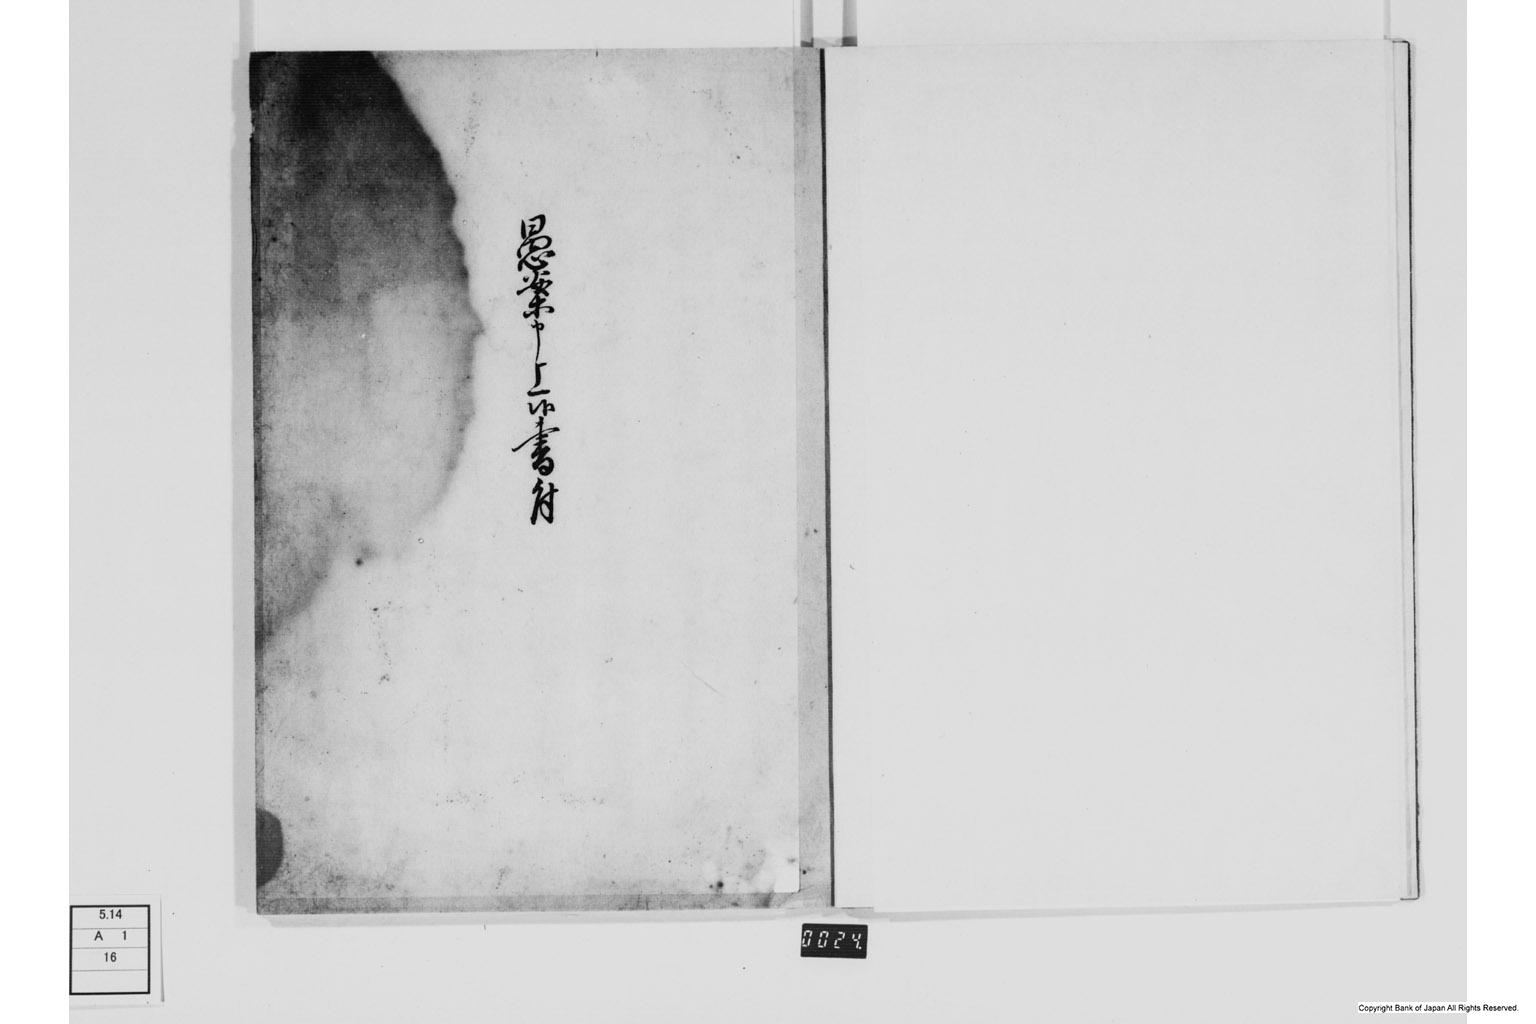 愚案申上候書付
5.14
A 1
16
0024
Copyright Bank of Japan All Rights Reserved.